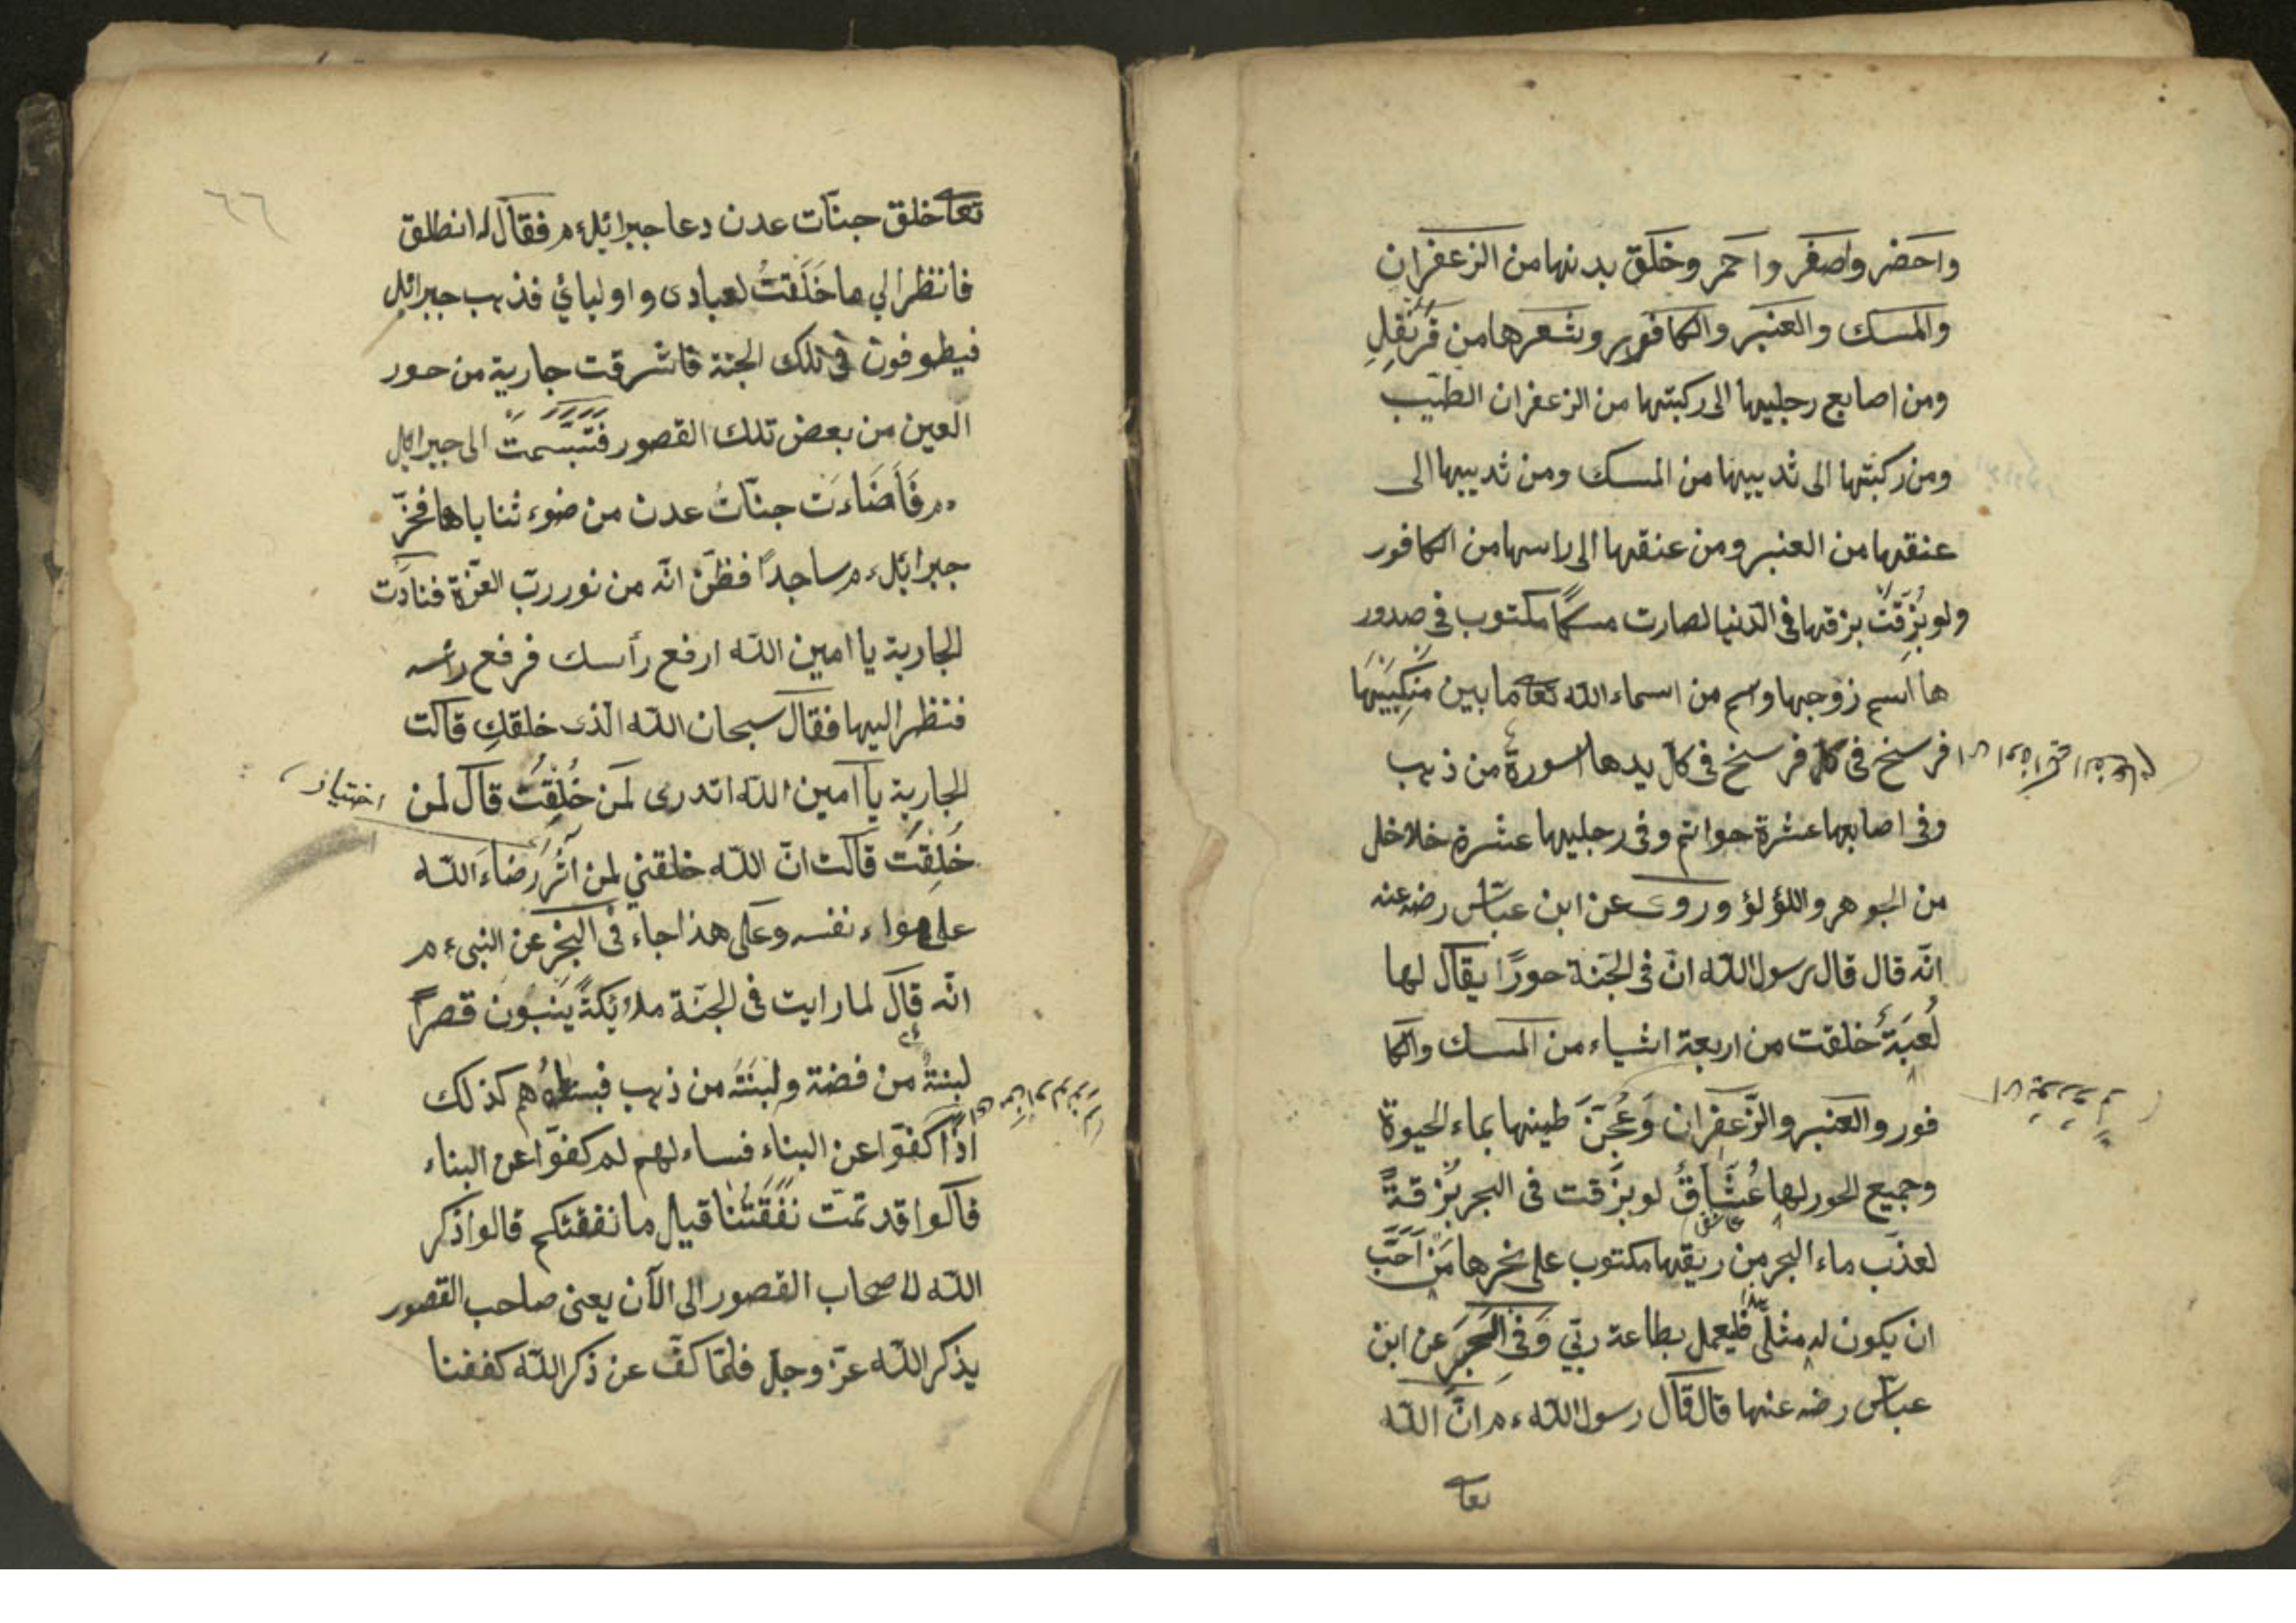 واحضر واصفر واحمر وخلق بدنها من الزعفران
والمسك والعنبر والكافور وشعرها من قَرَنْفُلِ
ومن اصابع رجليها الى ركبتها من الزعفران الطيّب
ومن ركبتها الى ثدييها من المسك ومن ثدييها الى
عنقها من العنبر ومن عنقها الى راسها من الكافور
ولو بُزِقَتْ بزقها فى الدّنيا لصارت مسكًا مكتوب فى صدور
ها اسم زوجها واسم من اسماء الله تعالى ما بين مَنكِبَيْهَا
فرسخ فى كل فرسخ فى كل يدها اسورة من ذهب
وفى اصابعها عشرة حواتم وفى رجليها عشرة خلاخل
من الجوهر واللؤلؤ وروى عن ابن عبّاس رضه عنه
انّه قال قال رسول الله انّ فى الجنة حورًا يقال لها
لُعبَةُ خلقت من اربعة اشياء من المسك والكا
فور والعنبر والزّعفران وَعُجِنَ طينها بماء الحيوة
وجميع الحور لها عُشَّاقُ لو بزقت فى البحر بُزقةً
عاشق
لعذب ماء البحر من ريقها مكتوب على نحرها مَن اَحَبَّ
ان يكون له مثلى فليعمل بطاعة ربّي وَفى الخبر عن ابن
عبّاس رضه عنها قال قال رسول الله ء م انّ الله
تعا
٦٦
تعا خلق جنّات عدن دعا جبرائيل ء م فقال له انطلق
فانظر الي ما خَلَقتُ لعبادى و اوليائي فذهب جبرائل
فيطوفون فى تلك الجنة فاشرقت جارية من حور
العين من بعض تلك القصور فتبسّمت الى جبرائل
ء م فَأَضَاءَت جنّاتُ عدن من ضوء ثناياها فخرّ
جبرائل ء م ساجدًا فظنّ انّه من نور ربّ العزّة فنادَت
الجارية يا امين الله ارفع رأسك فرفع رأسه
فنظر اليها فقال سبحان الله الّذى خلقكِ قالت
الجارية يا امين الله اتدرى لمن خُلِقتُ قال لمن
اختيار
خُلِقتُ قالت انّ الله خلقني لمن آثر رضاءَ الله
على هواء نفسه وعلى هذا جاء فى الخبر عن النبى ء م
انّه قال لما رايت فى الجنّة ملائكةً يَبْنُونَ قصرًا
لبنةً من فضة ولبنَتَه من ذهب فبينما هم كذلك
اذا كفّوا عن البناء فساء لهم لم كفّوا عن البناء
قالوا قد تمّت نفَقَتُنا قيل ما نفقتكم قالوا ذكر
الله لاصحاب القصور الى الآن يعنى صاحب القصور
يذكر الله عزّ وجلّ فلمّا كفّ عن ذكر الله كففنا